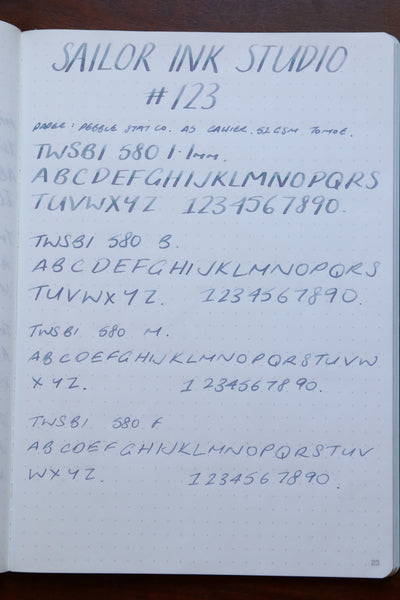 SAILOR INK STUDIO
#123
PAPER: PEBBLE STAT CO. A5 CAHIER. 52GSM TOMOE.
TWSBI 580 1.1mm.
ABCDEFGHIJKLMNOPQRS
TUVWXYZ 1234567890.
TWSBI 580 B.
ABCDEFGHIJKLMNOPQRS
TUVWXYZ. 1234567890.
TWSBI 580 M.
ABCDEFGHIJKLMNOPQRSTUVW
XYZ. 1234567890.
TWSBI 580 F
ABCDEFGHIJKLMNOPQRSTUV
WXYZ. 1234567890.